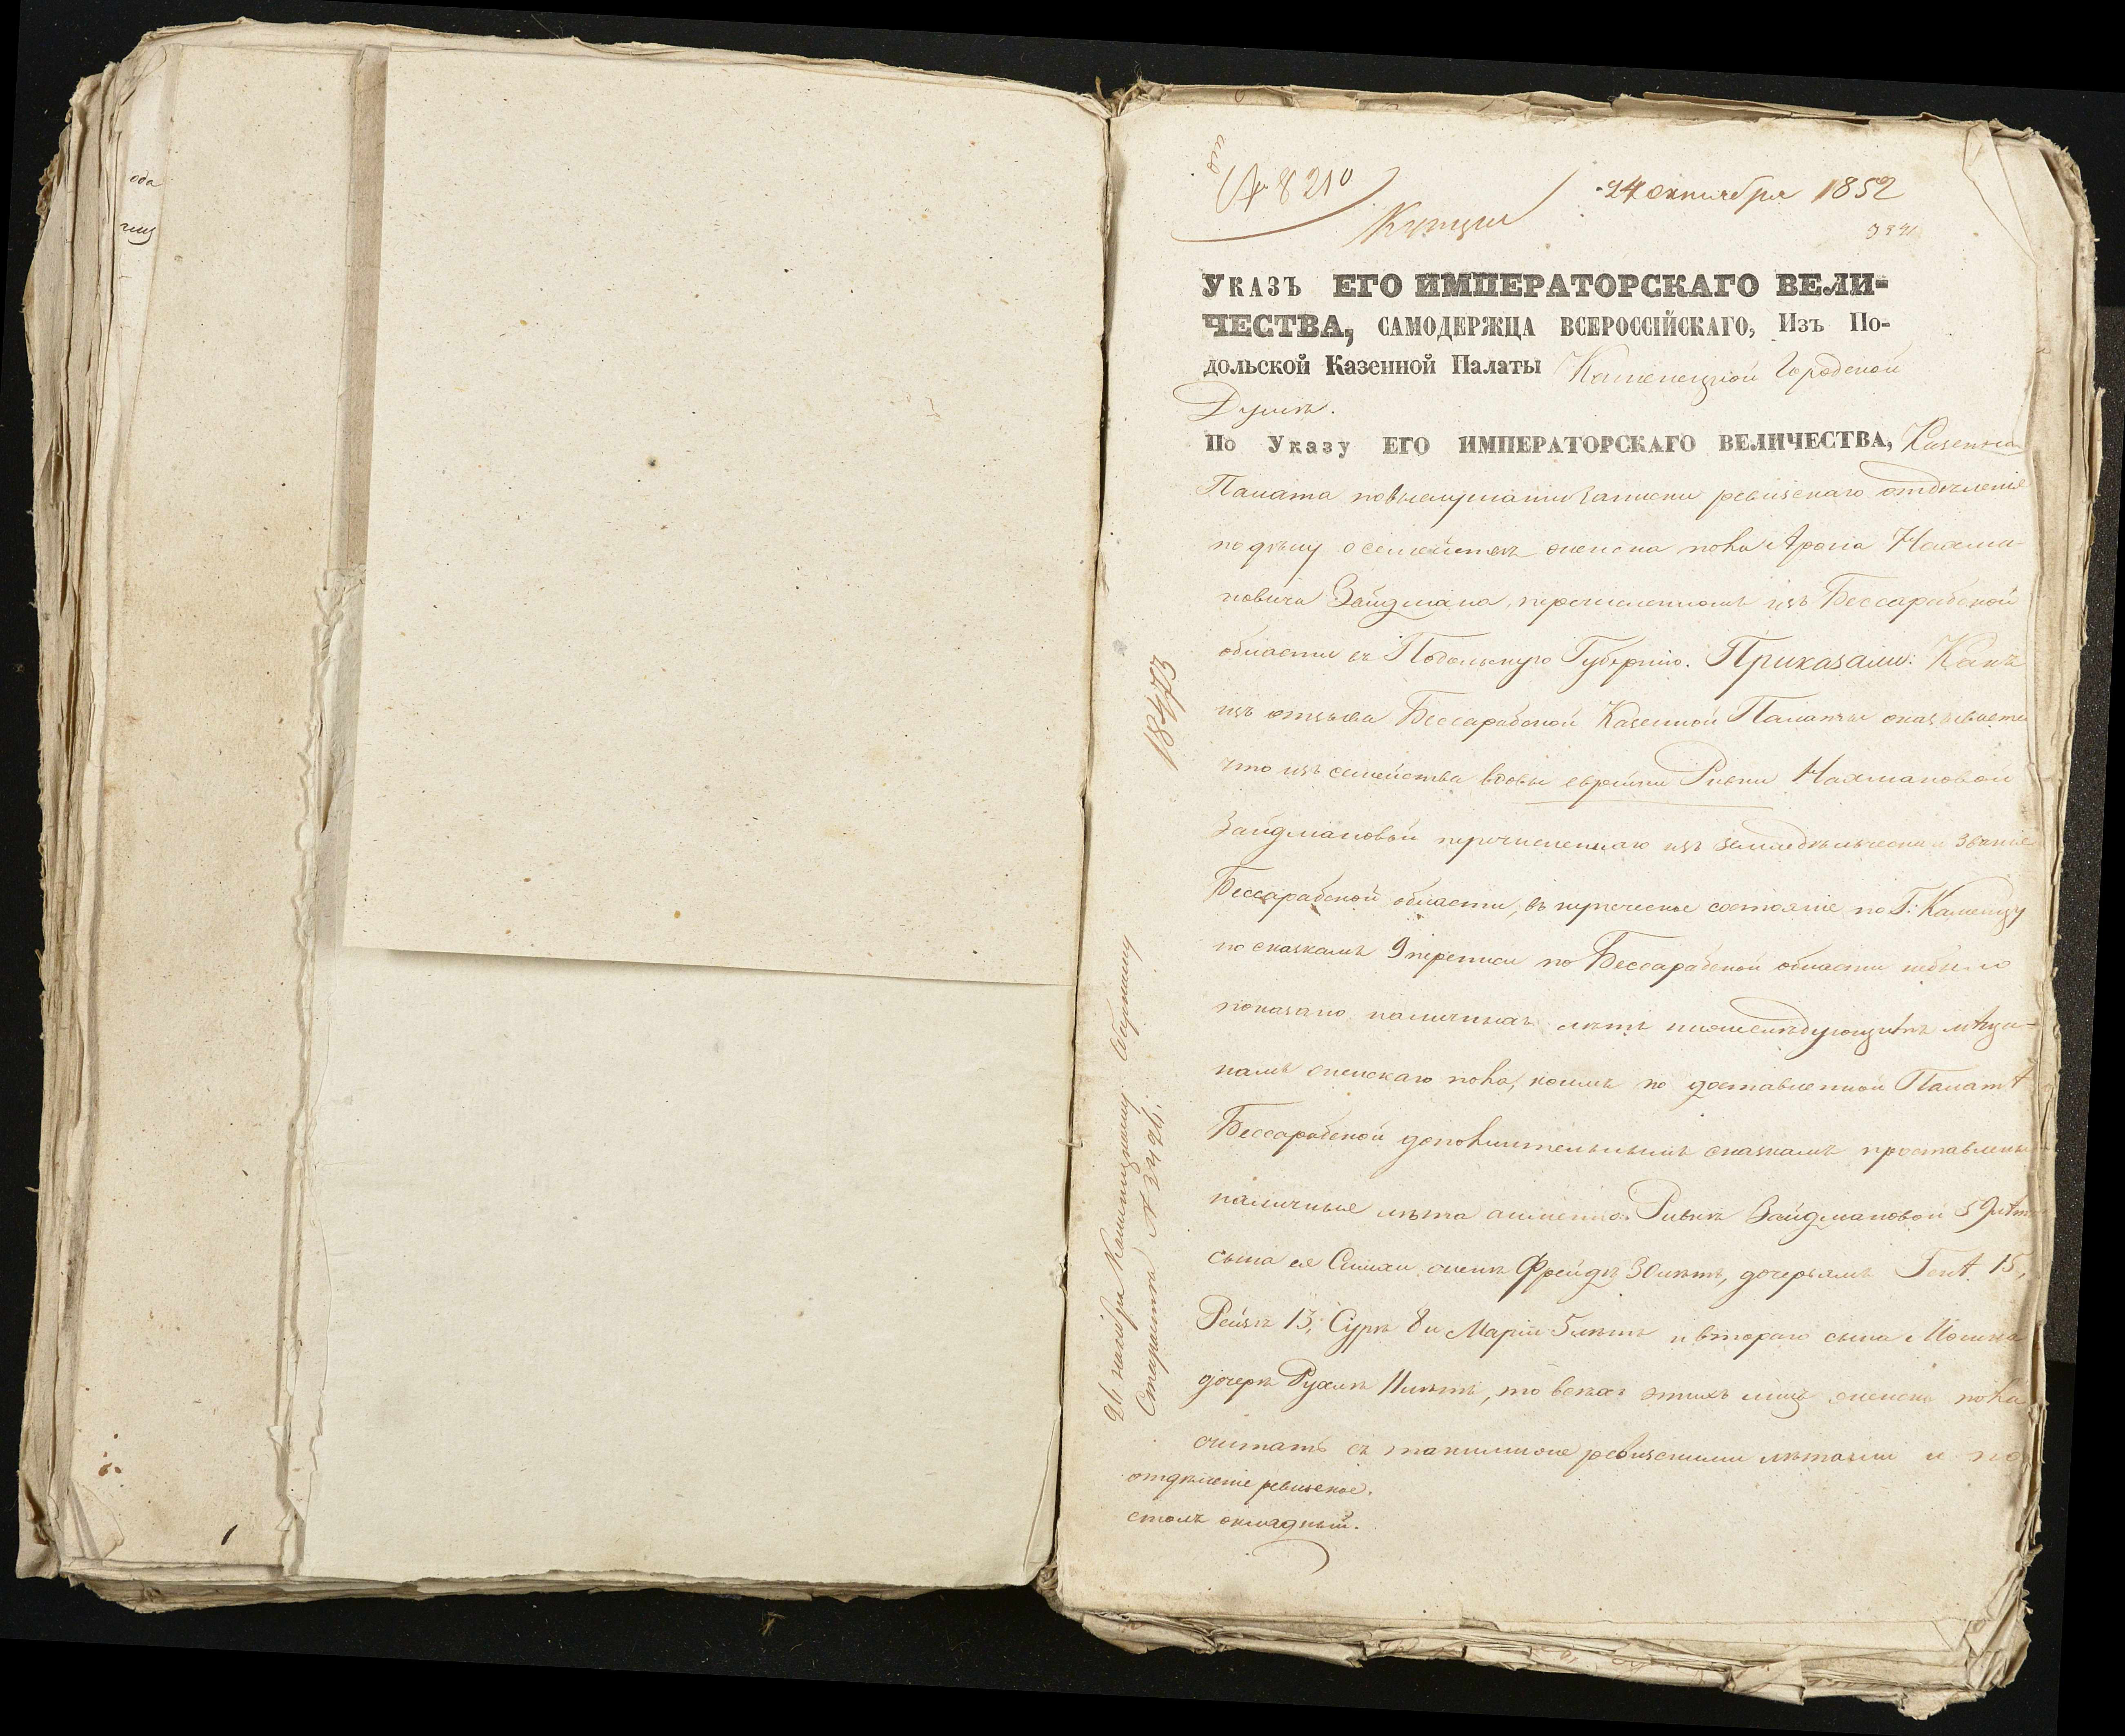 ода
№ 8210
24 октября 1852
Купцы
Указъ ЕГО ИМПЕРАТОРСКАГО ВЕЛИ-
ЧЕСТВА, САМОДЕРЖЦА ВСЕРОССІЙСКАГО, Изъ По-
дольской Казенной Палаты Каменецкой Городской
Думѣ.
По Указу ЕГО ИМПЕРАТОРСКАГО ВЕЛИЧЕСТВА, Казенная
Палата по выслушаніи записки ревизскаго отдѣленія
по дѣлу о семействѣ женска пола Арона Нахма-
новича Зайдмана, перечисленномъ изъ Бессарабской
области въ Подольскую Губернію. Приказали: Какъ
изъ отзыва Бессарабской Казенной Палаты оказывается
что изъ семейства вдовы еврейки Ривки Нахмановой
Зайдмановой перечисленнаго изъ земледѣльческаго званія
Бессарабской области, въ купеческое состояніе по Г: Каменцу
по сказкамъ 9 переписи по Бессарабской области небыло
показано наличныхъ лѣтъ нижеслѣдующимъ лица-
намъ женскаго пола, коимъ по доставленной Палатѣ
Бессарабской дополнительнымъ сказкамъ проставлены
наличные лѣта а именно: Ривкѣ Зайдмановой 59 лѣтъ
сына ея Симхи женѣ Фрейдѣ 30 лѣтъ, дочерьямъ Гентѣ 15,
Рейзѣ 13, Сурѣ 8 и Маріи 5 лѣтъ и втораго сына Мошка
дочерѣ Рухлѣ 11 лѣтъ, то всѣхъ этихъ лицъ женска пола
считать съ таковыми же ревизскими лѣтами и по
отдѣленіе ревизское.
столъ окладный.
18473
26 ноября Каменецкому Сборному
Старостѣ № 3424.